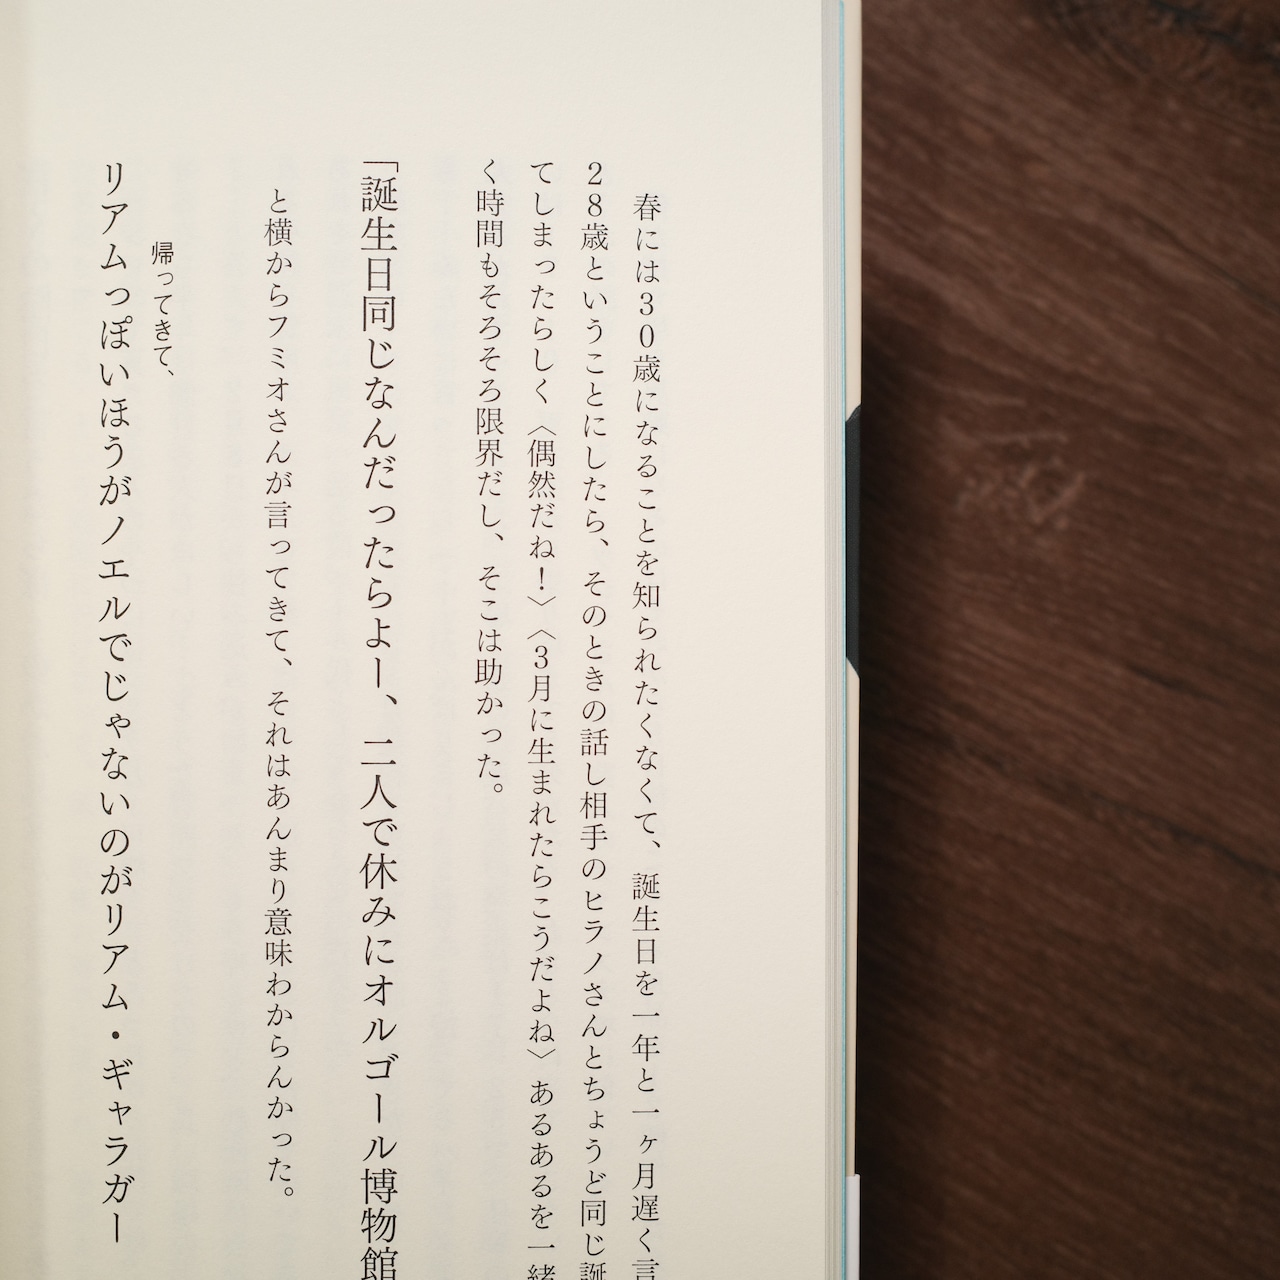 春には30歳になることを知られたくなくて、誕生日を一年と一ヶ月遅く言
28歳ということにしたら、そのときの話し相手のヒラノさんとちょうど同じ誕
てしまったらしく〈偶然だね！〉〈3月に生まれたらこうだよね〉あるあるを一緒
く時間もそろそろ限界だし、そこは助かった。
「誕生日同じなんだったらよー、二人で休みにオルゴール博物館
と横からフミオさんが言ってきて、それはあんまり意味わからんかった。
帰ってきて、
リアムっぽいほうがノエルでじゃないのがリアム・ギャラガー